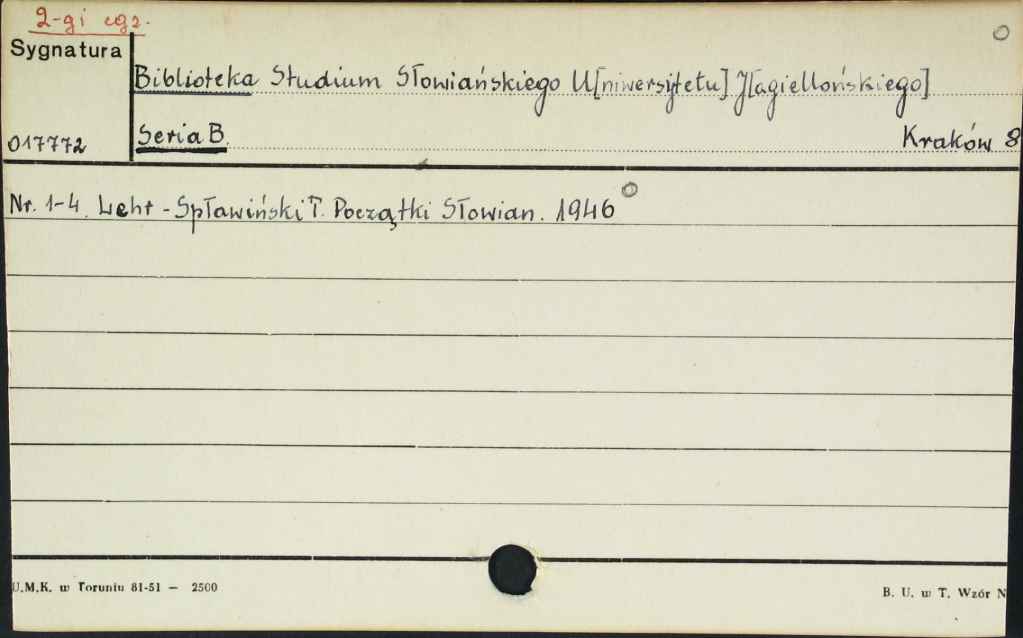 2-gi egz.
Sygnatura
Biblioteka Studium Słowiańskiego U[niwersytetu] J[agiellońskiego]
017772 Seria B. Kraków 8
Nr. 1-4. Lehr-Spławiński T. Początki Słowian. 1946
U.M.K. w Toruniu 81-51 — 2500
B. U. w T. Wzór N